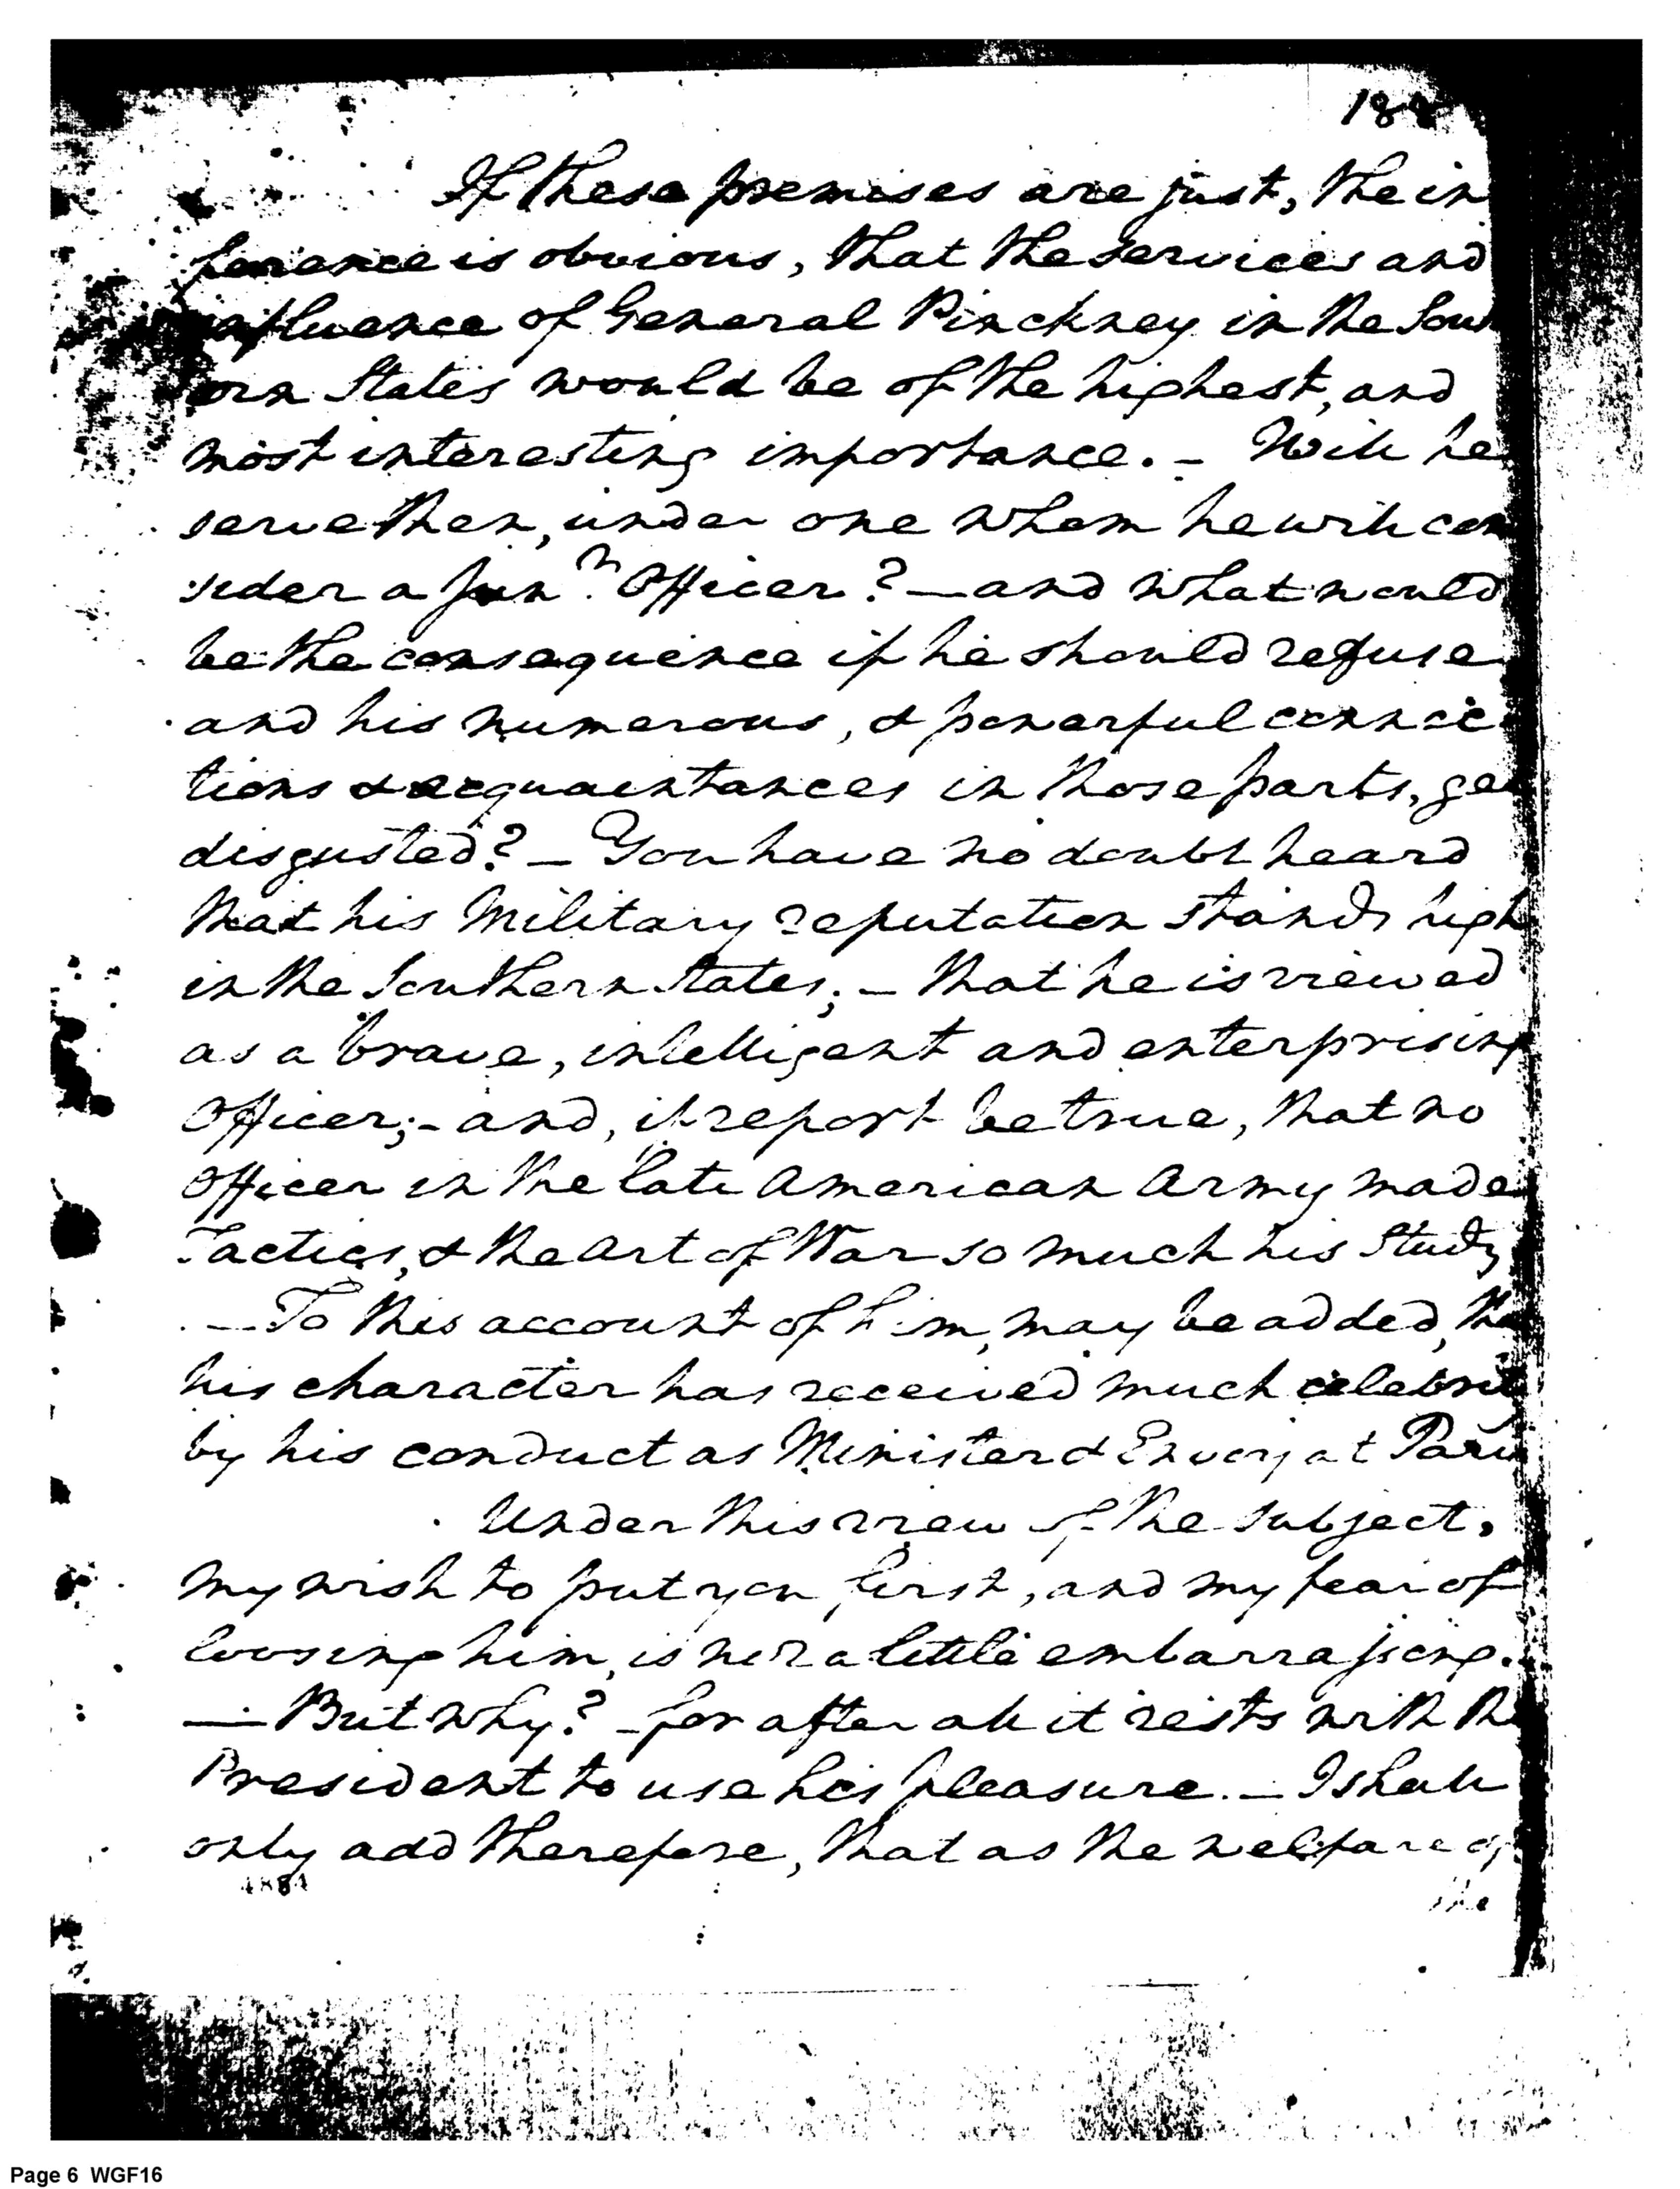 If these premises are just, the in
ference is obvious, that the services and
influence of General Pinckney in the Sou
ern States would be of the highest, and
most interesting importance. — Will he
serve then, under one whom he will con
sider a Junr. Officer? — and what would
be the consequence if he should refuse
and his numerous, & powerful connec
tions & acquaintances in those parts, ge
disgusted? — You have no doubt heard
that his Military reputation stands high
in the Southern States; — that he is viewed
as a brave, intelligent and enterprising
Officer; - and, if report be true, that no
Officer in the late American Army made
Tactics, & the art of War so much his Study
— To this account of him, may be added, tha
his character has received much celebrit
by his conduct as Minister & Envoy at Paris
Under this view of the subject,
my wish to put you first, and my fear of
loosing him, is not a little embarrassing.
— But why? — for after all it rests with the
President to use his pleasure. — I shall
only add therefore, that as the welfare of
the
4884
Page 6 WGF16